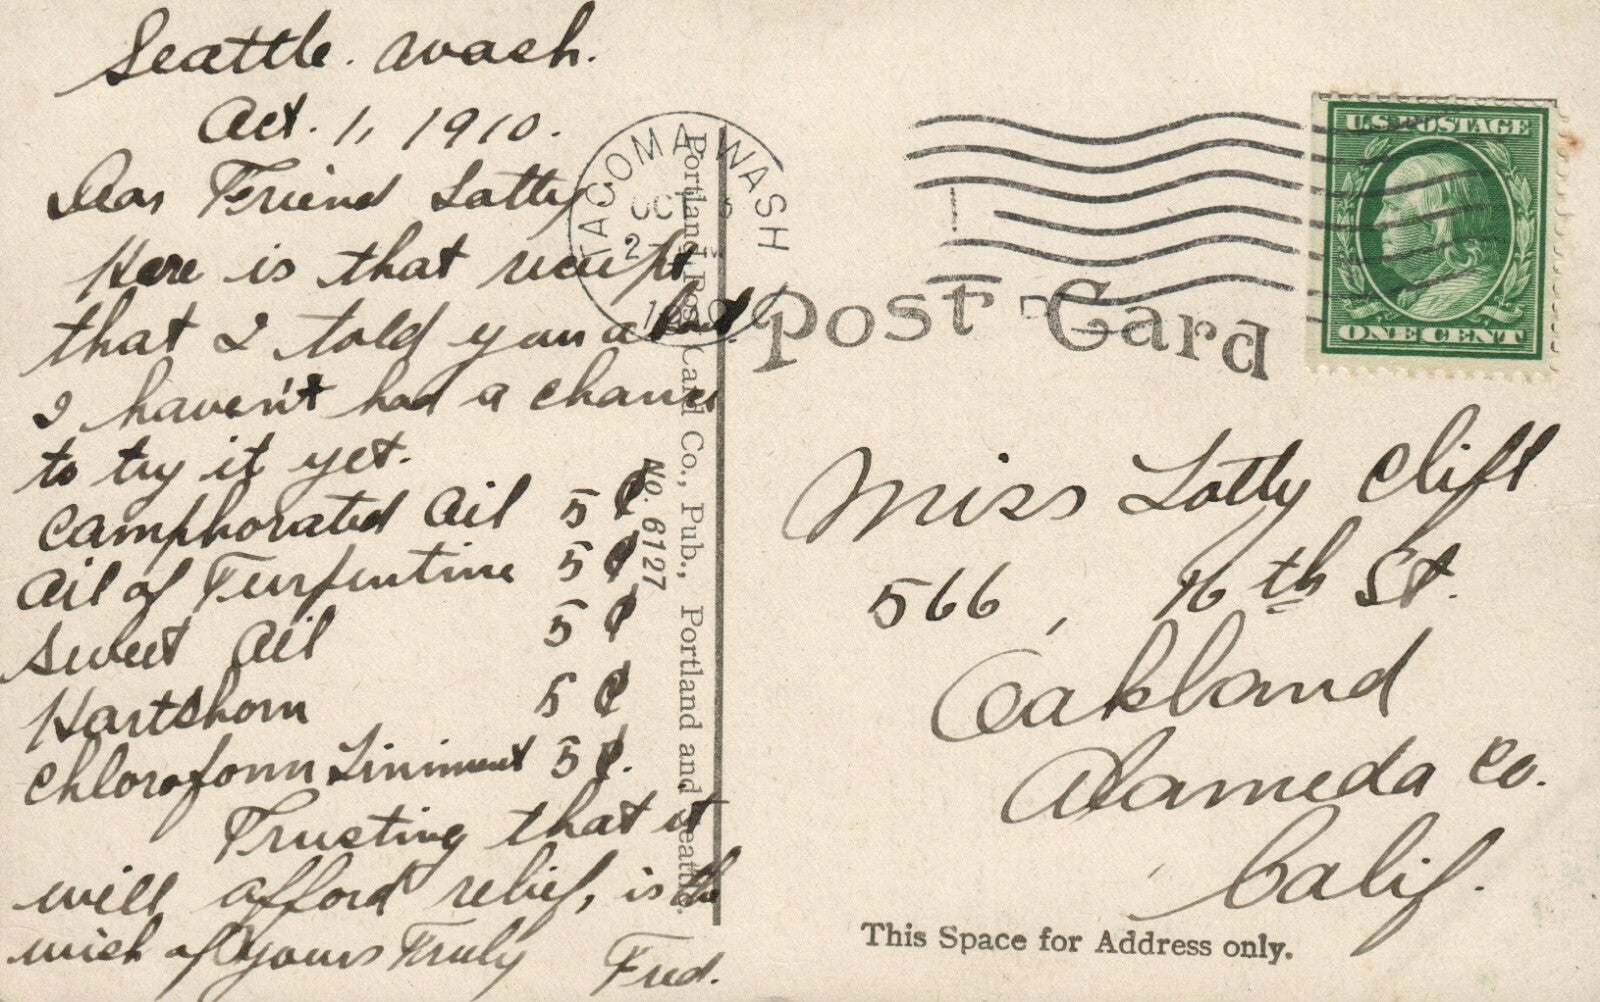 Seattle. Wash.
Oct. 1, 1910.
Dear Friend Lotty
Here is that receipt
that I told you about.
I haven't had a chance
to try it yet.
Camphorated Oil 5¢
Oil of Turpentine 5¢
Sweet Oil 5¢
Hartshorn 5¢
Chloroform Liniment 5¢.
Trusting that it
will afford relief, is the
wish of Yours Truly Fred.
TACOMA WASH
OCT
2-
Portland Post Card Co., Pub., Portland and Seattle.
No. 6127
Post Card
U.S. POSTAGE
ONE CENT
Miss Lotty Clift
566, 16th St.
Oakland
Alameda Co.
Calif.
This Space for Address only.